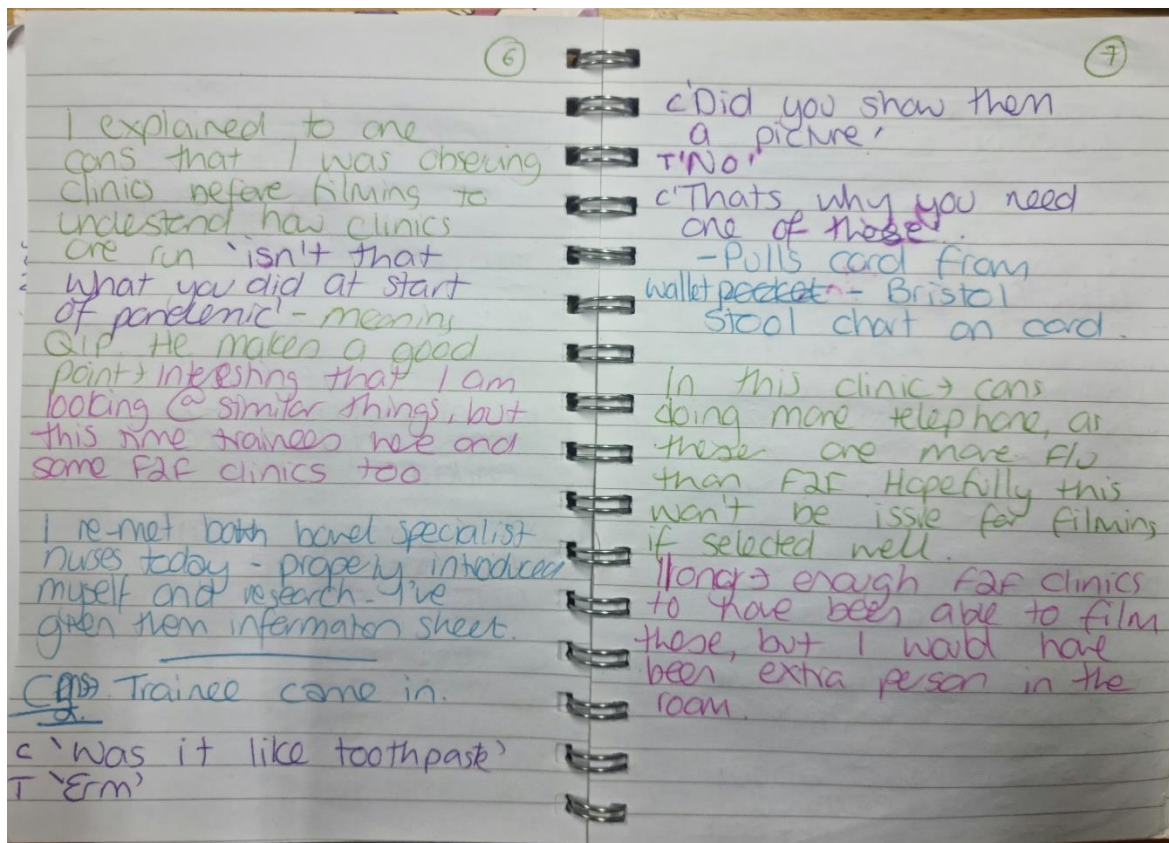 6
I explained to one
cons that I was obsering
clinics before filming to
understand how clinics
are run 'isn't that
what you did at start
of pandemic' - meaning
QIP. He makes a good
point → interesting that I am
looking @ similar things, but
this time trainees here and
some F2F clinics too
I re-met both bowel specialist
nurses today - properly introduced
myself and research - I've
given them information sheet.
Trainee came in.
C 'Was it like toothpaste'
T 'Erm'
7
C 'Did you show them
a picture'
T 'No'
C 'Thats why you need
one of these'.
- Pulls card from
wallet pocket - Bristol
stool chart on card.
In this clinic → cons
doing more telephone, as
these are more F/U
than F2F. Hopefully this
won't be issue for filming
if selected well.
→ enough F2F clinics
to have been able to film
these, but I would have
been extra person in the
room.